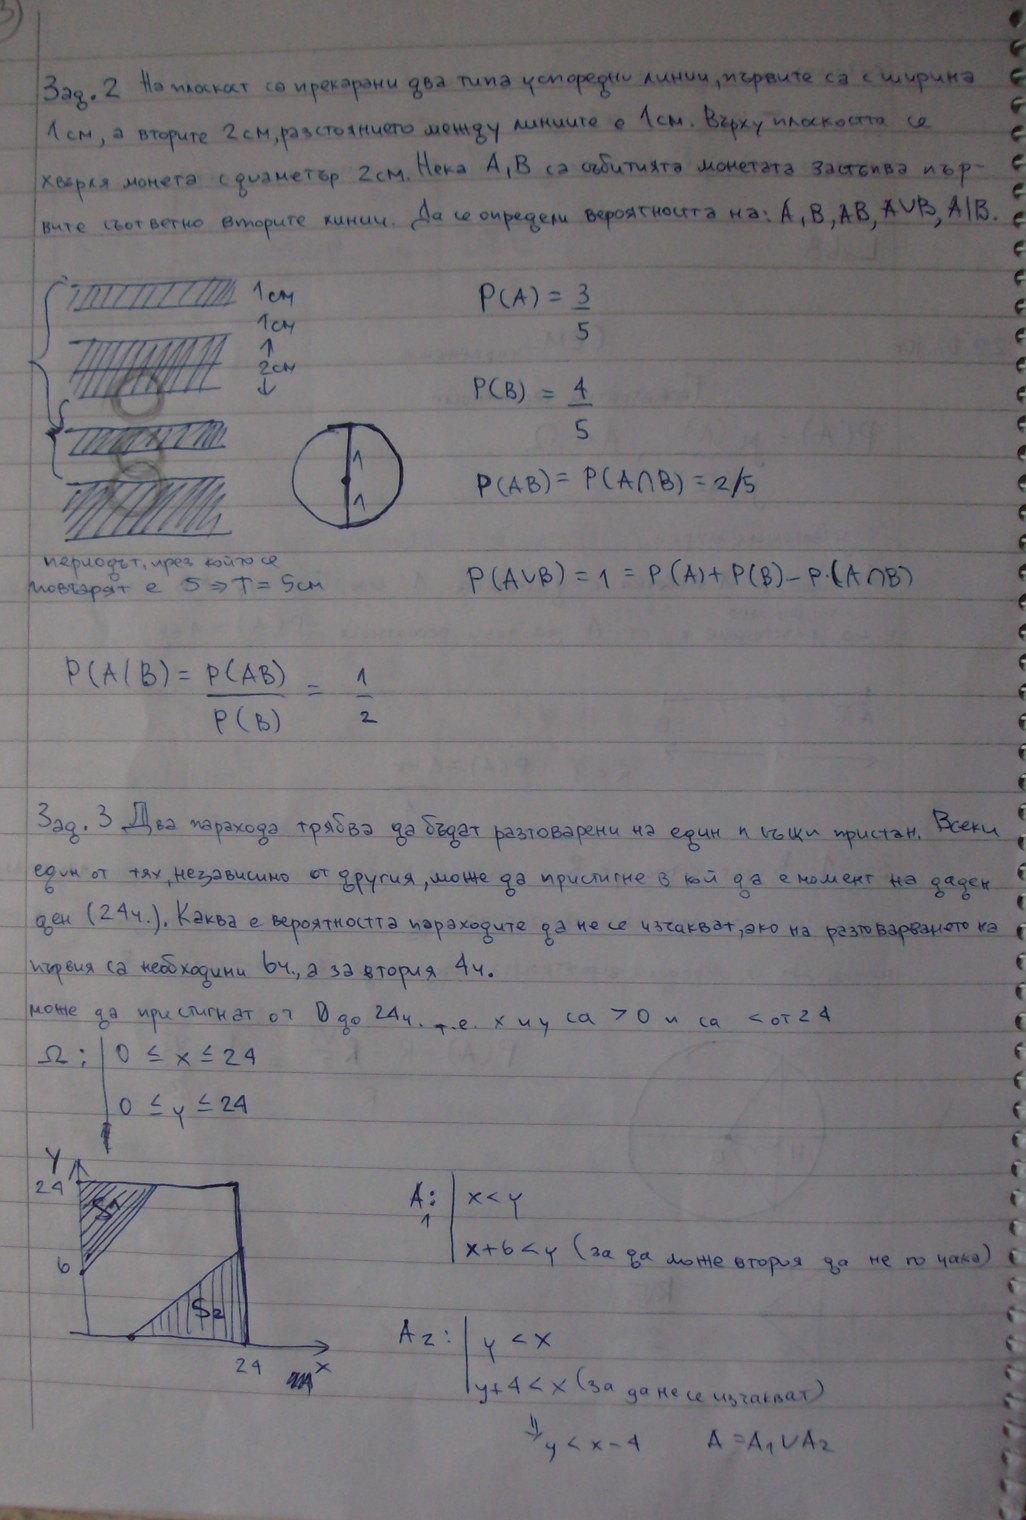 Зад. 2 На плоскост са прекарани два типа успоредни линии, първите са с ширина
1 см, а вторите 2 см, разстоянието между линиите е 1 см. Върху плоскостта се
хвърля монета с диаметър 2 см. Нека A, B са събитията монетата застъпва пър-
вите съответно вторите линии. Да се определи вероятността на: A, B, AB, A∪B, A|B.
1 см
1 см
↑
2 см
↓
P(A) = 3/5
P(B) = 4/5
1
1
P(AB) = P(A∩B) = 2/5
периодът, през който се
повтарят е 5 ⇒ T = 5 см
P(A∪B) = 1 = P(A) + P(B) − P(A∩B)
P(A|B) = P(AB)/P(B) = 1/2
Зад. 3 Два парахода трябва да бъдат разтоварени на един и същи пристан. Всеки
един от тях, независимо от другия, може да пристигне в кой да е момент на даден
ден (24ч.). Каква е вероятността параходите да не се изчакват, ако на разтоварването на
първия са необходими 6ч., а за втория 4ч.
може да пристигнат от 0 до 24ч. т.е. x и y са > 0 и са < от 24
Ω: | 0 ≤ x ≤ 24
0 ≤ y ≤ 24
Y
24
S1
6
S2
24
x
A1: | x < y
x+6 < y (за да може втория да не го чака)
A2: | y < x
y+4 < x (за да не се изчакват)
⇓
y < x − 4 A = A1 ∪ A2